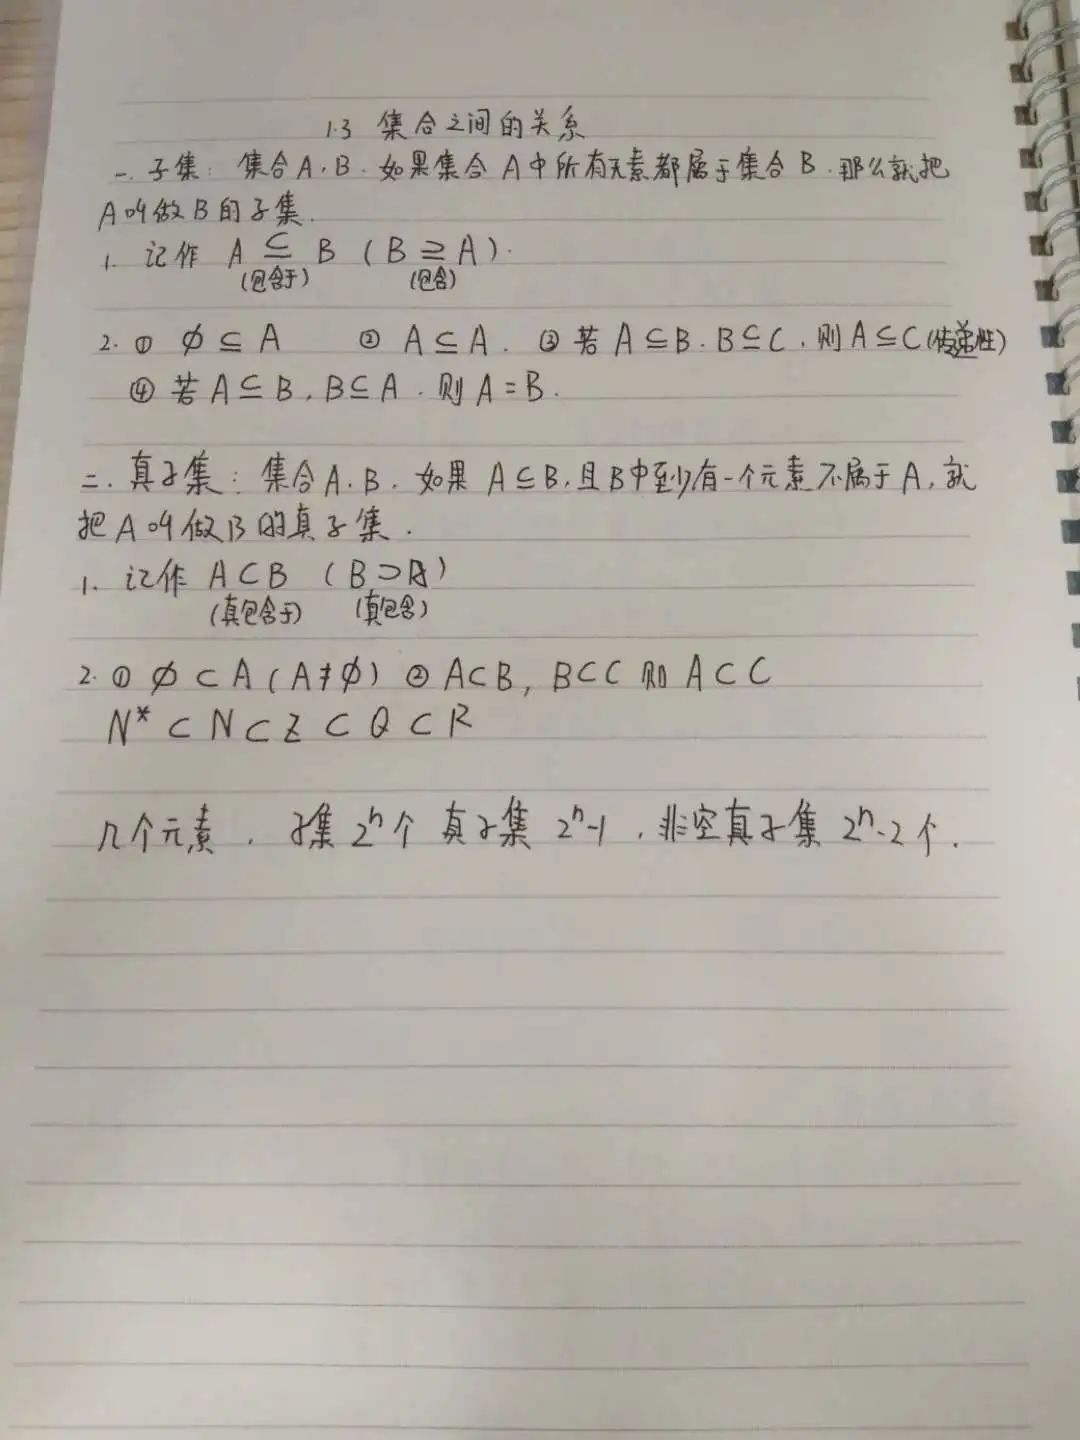 1.3 集合之间的关系
一. 子集: 集合A,B. 如果集合A中所有元素都属于集合B.那么就把
A叫做B的子集.
1. 记作 A ⊆ B (B ⊇ A).
(包含于) (包含)
2. ① ∅ ⊆ A ② A ⊆ A. ③ 若 A ⊆ B. B ⊆ C, 则 A ⊆ C (传递性)
④ 若 A ⊆ B, B ⊆ A. 则 A = B.
二. 真子集: 集合A.B. 如果 A ⊆ B,且B中至少有一个元素不属于A,就
把A叫做B的真子集.
1. 记作 A⊂B (B⊃A)
(真包含于) (真包含)
2. ① ∅ ⊂ A (A≠∅) ② A⊂B, B⊂C 则 A⊂C
N* ⊂ N ⊂ Z ⊂ Q ⊂ R
几个元素, 子集 2ⁿ个 真子集 2ⁿ-1, 非空真子集 2ⁿ-2个.